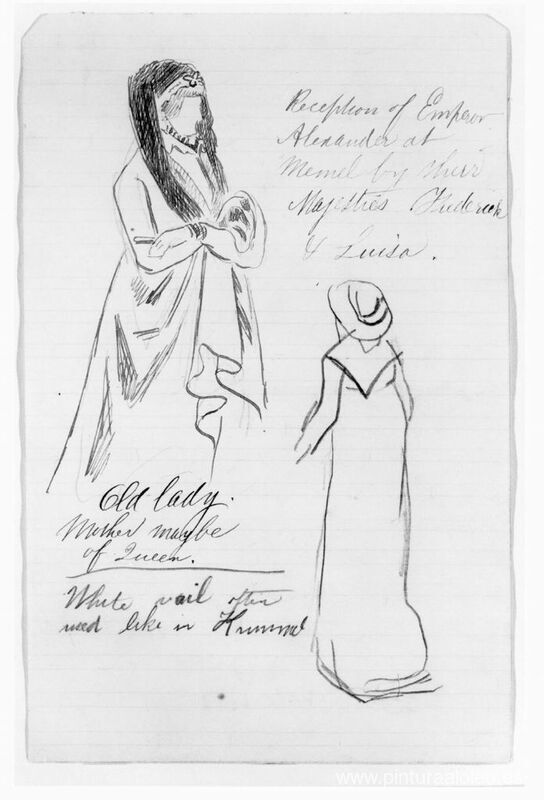 Reception of Emperor
Alexander at
Memel by their
Majesties Frederick
& Luisa.
Old lady.
Mother maybe
of Queen.
White vail often
used like in
www.pinturaaloleo.es